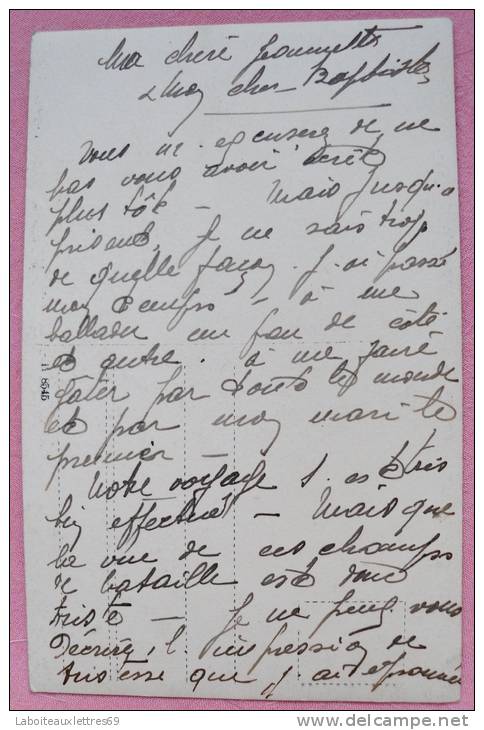 Ma chère Jeannette
& Mon cher Baptiste
Vous m'excuserez de ne
pas vous avoir écrit
plus tôt - Mais jusqu'à
présent, je ne sais trop
de quelle façon j'ai passé
mon temps - à me
ballader un peu de côté
et autre. à me faire
gâter par tout le monde
et par mon mari le
premier -
Notre voyage s'est très
bien effectué - Mais que
la vue de ces champs
de bataille est donc
triste - Je ne peux vous
Décrire l'impression de
tristesse que j'ai éprouvé
Laboiteauxlettres69
www.delcampe.net